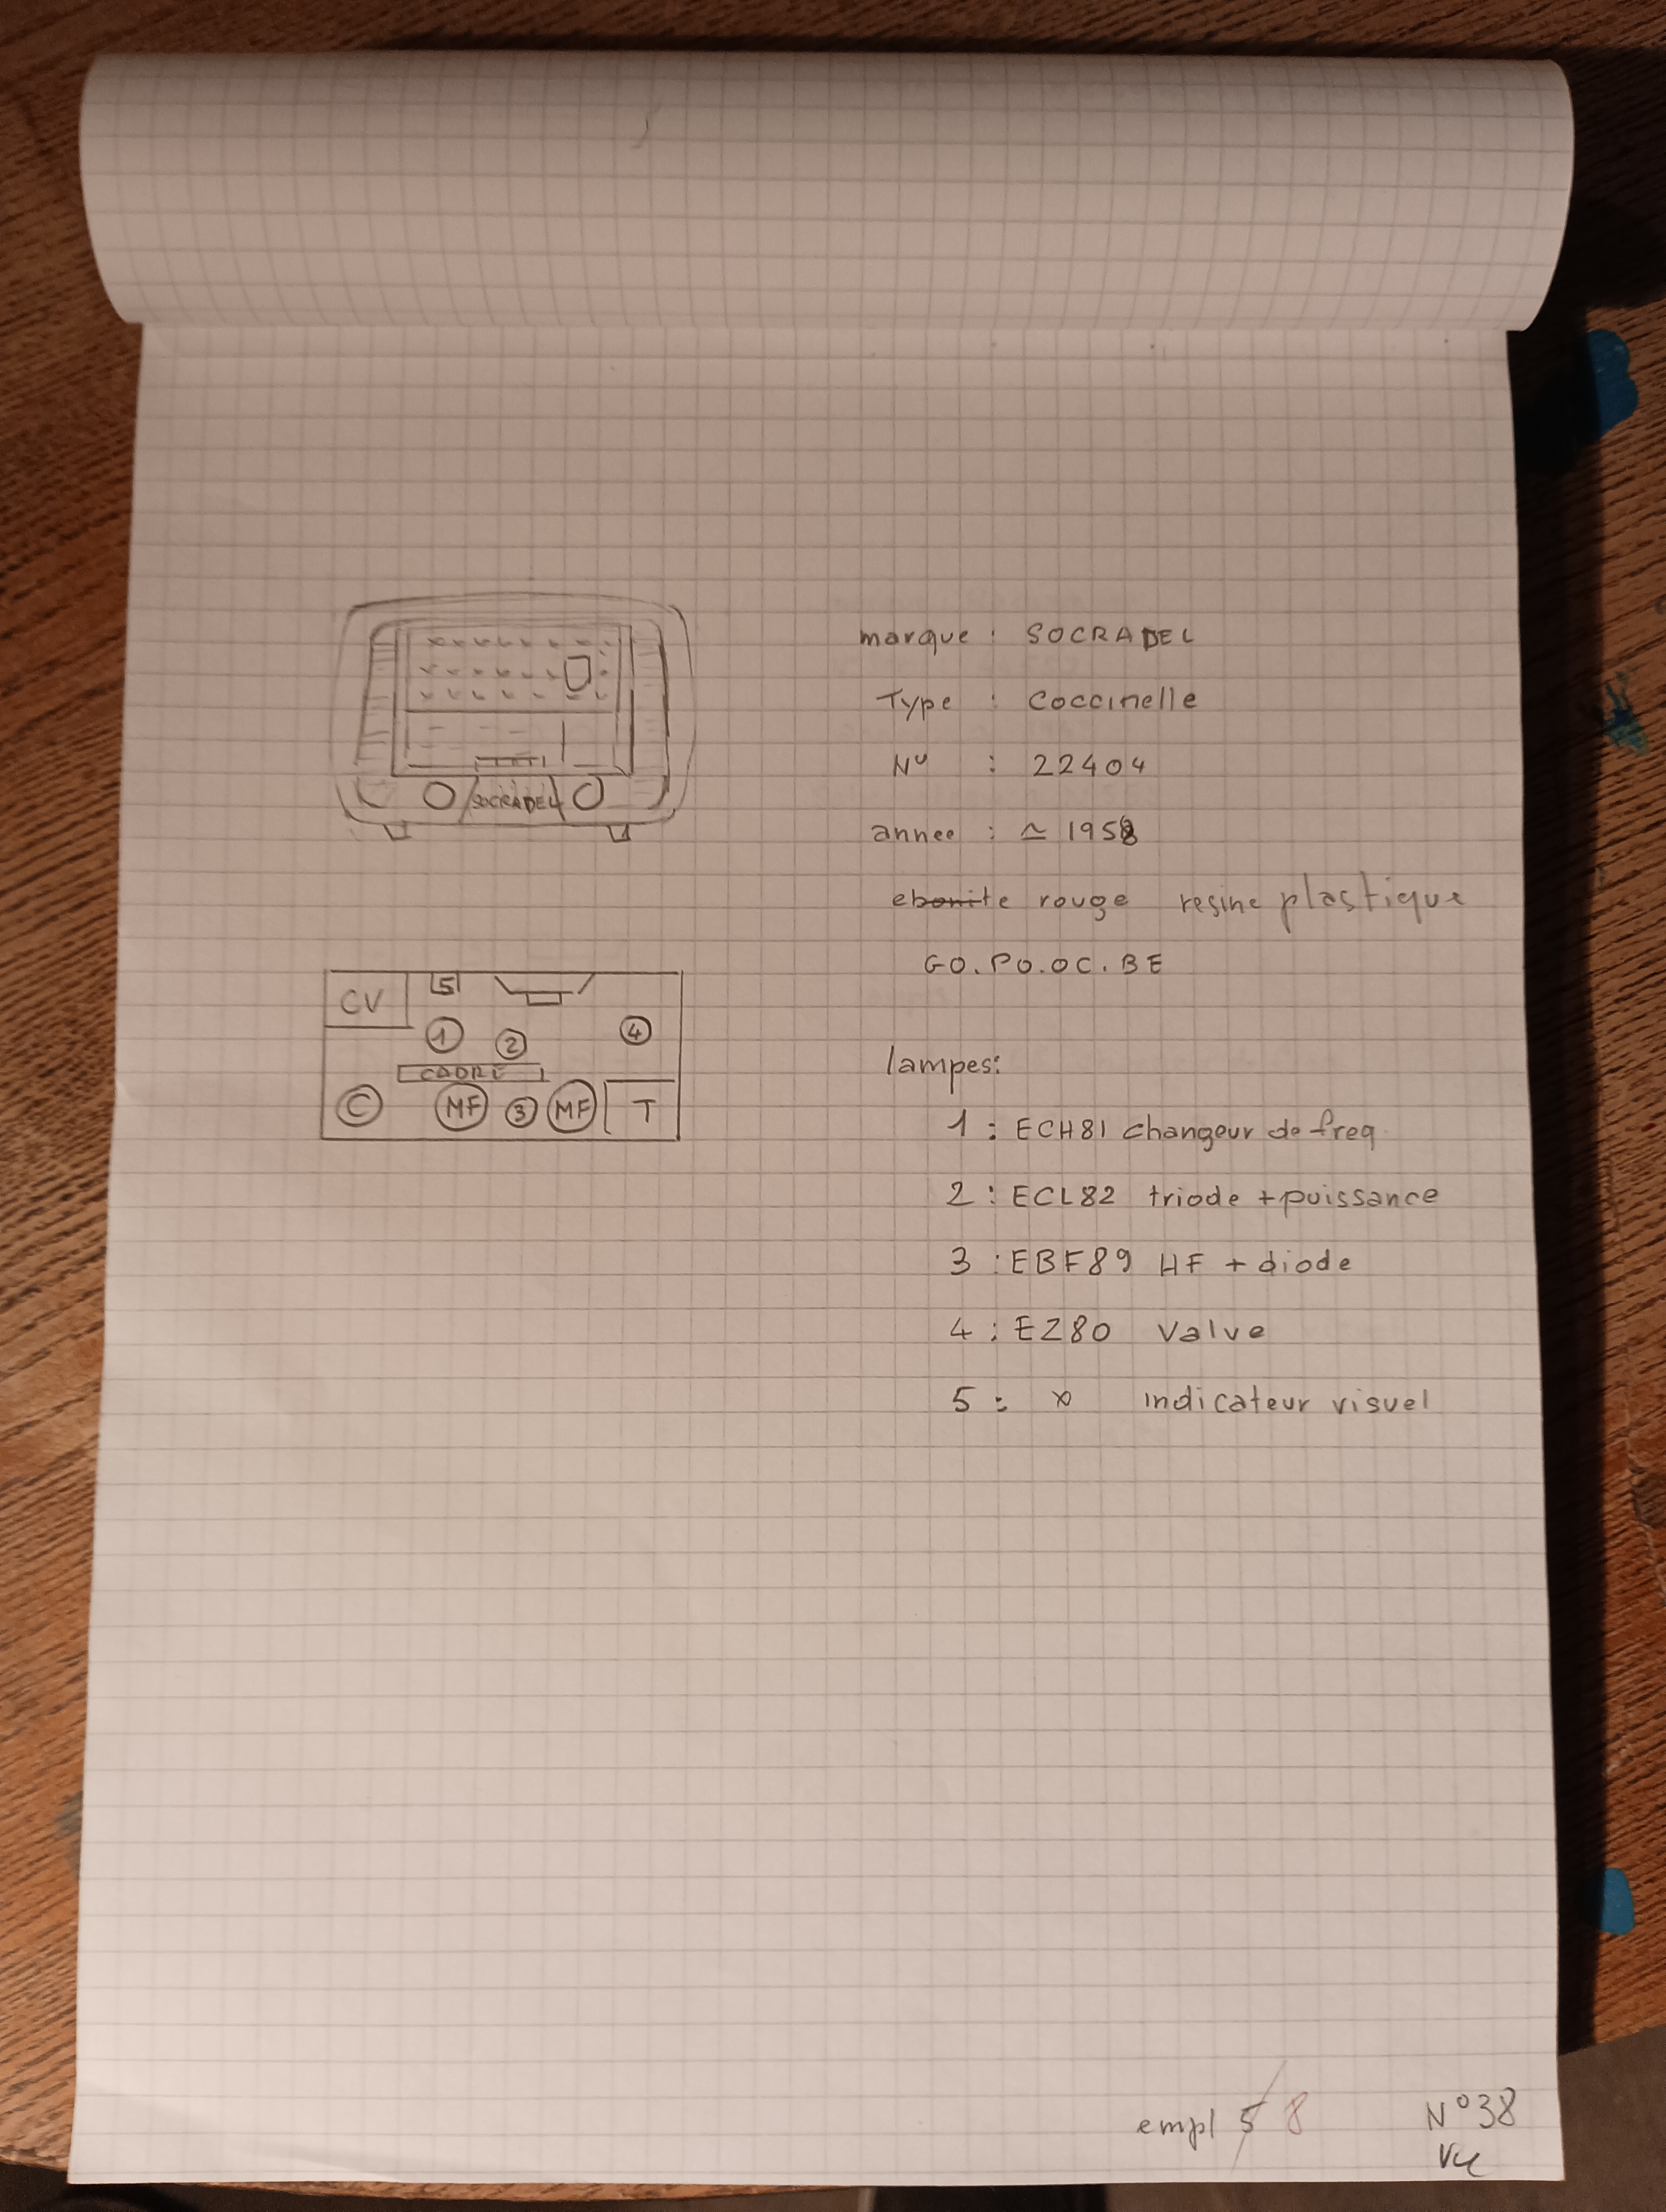 SOCRADEL
marque : SOCRADEL
Type : Coccinelle
N° : 22404
annee : ≃ 1958
ebonite rouge resine plastique
GO.PO.OC.BE
CV
5
1
2
4
CADRE
C
MF
3
MF
T
lampes:
1 : ECH81 changeur de freq.
2 : ECL82 triode + puissance
3 : EBF89 HF + diode
4 : EZ80 Valve
5 : x indicateur visuel
empl 5 8
N°38
Vu